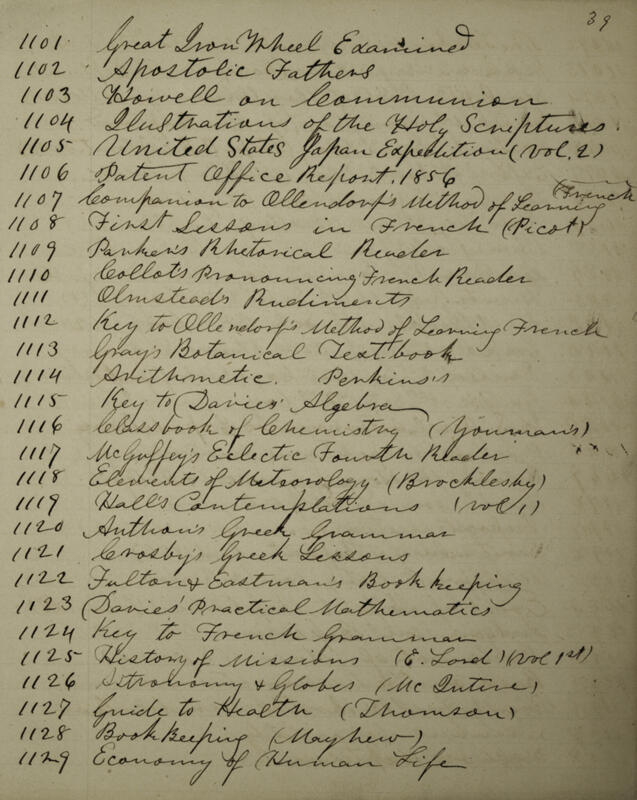 39
1101 Great Iron Wheel Examined
1102 Apostolic Fathers
1103 Howell on Communion
1104 Illustrations of the Holy Scriptures.
1105 United States Japan Expedition (Vol. 2)
1106 Patent Office Report, 1856
1107 Companion to Ollendorf's Method of Learning (French
1108 First Lessons in French (Picot)
1109 Parker's Rhetorical Reader
1110 Collot's Pronouncing French Reader
1111 Olmstead's Rudiments
1112 Key to Ollendorf's Method of Learning French
1113 Gray's Botanical Textbook
1114 Arithmetic. Perkins's
1115 Key to Davies' Algebra
1116 Classbook of Chemistry (Youman's)
1117 McGuffey's Eclectic Fourth Reader
1118 Elements of Meteorology (Brocklesby)
1119 Hall's Contemplations (vol 1)
1120 Anthon's Greek Grammar
1121 Crosby's Greek Lessons
1122 Fulton & Eastman's Book keeping
1123 Davies' Practical Mathematics
1124 Key to French Grammar
1125 History of Missions (E. Lord) (vol 1st)
1126 Astronomy & Globes (McIntire)
1127 Guide to Health (Thomson)
1128 Book Keeping (Mayhew)
1129 Economy of Human Life